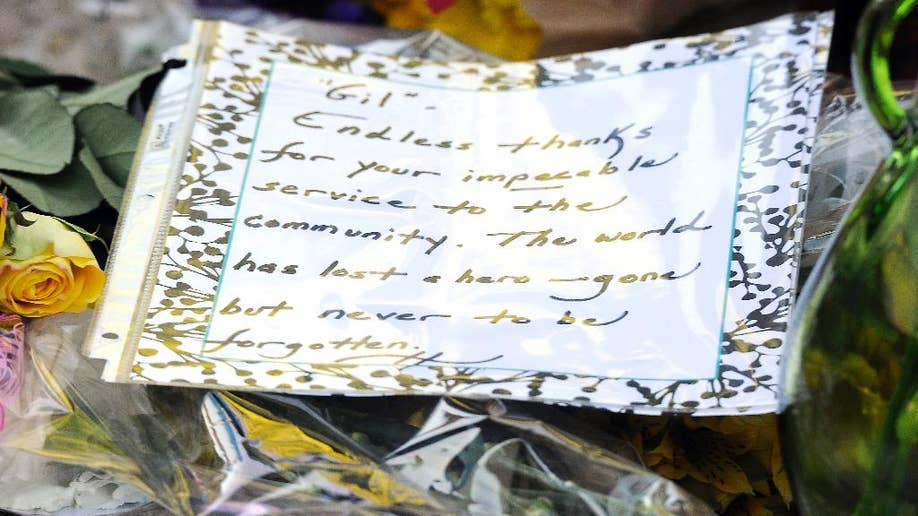 "Gil".
Endless thanks
for your impecable
service to the
community. The world
has lost a hero — gone
but never to be
forgotten.